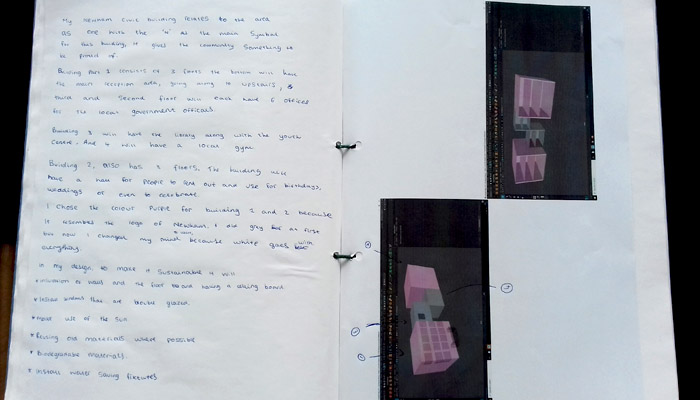 My newham Civic building relates to the area
as one with the "N" as the main Symbol
for this building, it gives the community something to
be proud of.
Building Part 1 consists of 3 floors the bottom will have
the main reception area, going along to upstairs,
third and second floor will each have 6 offices
for the local government officals.
Building 3 will have the library along with the youth
Centre. And 4 will have a local gym.
Building 2, also has 3 floors. The building will
have a hall for people to rent out and use for birthdays,
weddings or even to celebrate.
I chose the colour Purple for building 1 and 2 because
it resembles the logo of Newham, I did gray at first
but now i changed my mind because white goes with
everything.
in my design, to make it Sustainable it will
* insulation of walls and the floor having a board.
* windows that are double glazed.
* make use of the sun
* Reusing old materials where possible
* Biodegradable materials.
* install water saving fixtures